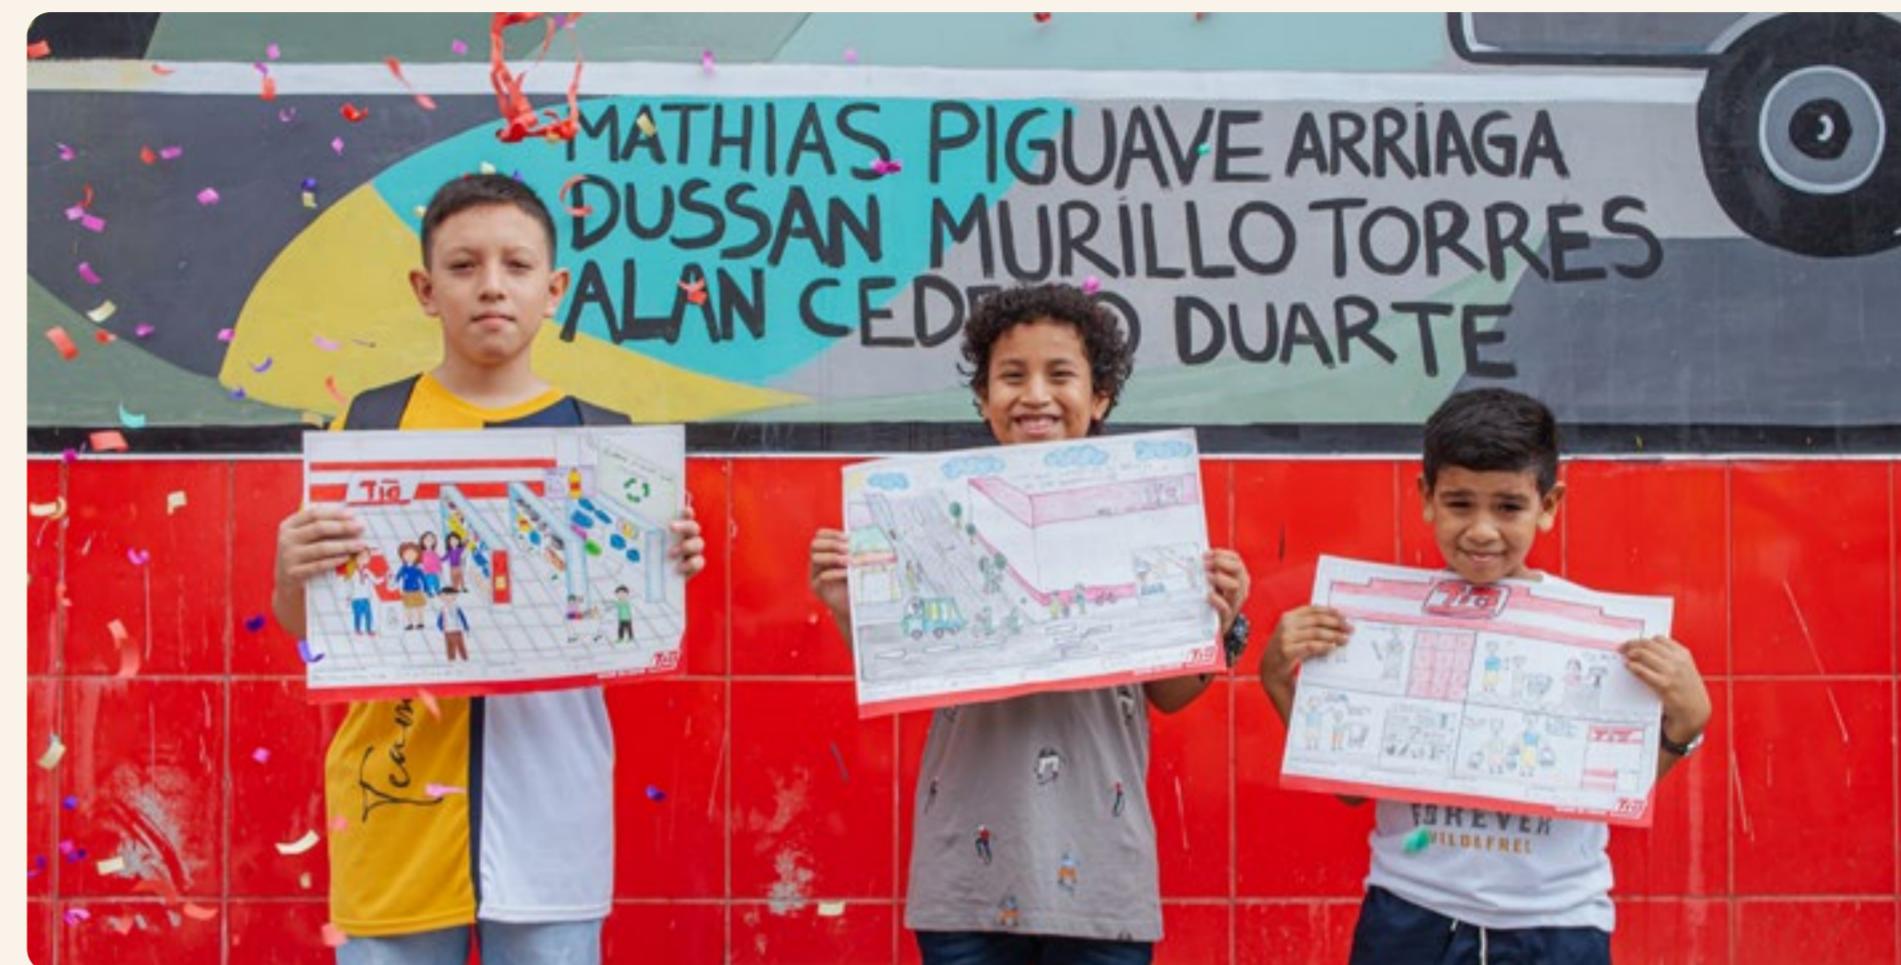 MATHIAS PIGUAVE ARRIAGA
DUSSAN MURILLO TORRES
ALAN CED O DUARTE
Tía
Tía
Tía
Tía
Tía
Team
FOREVER
WILD&FREE